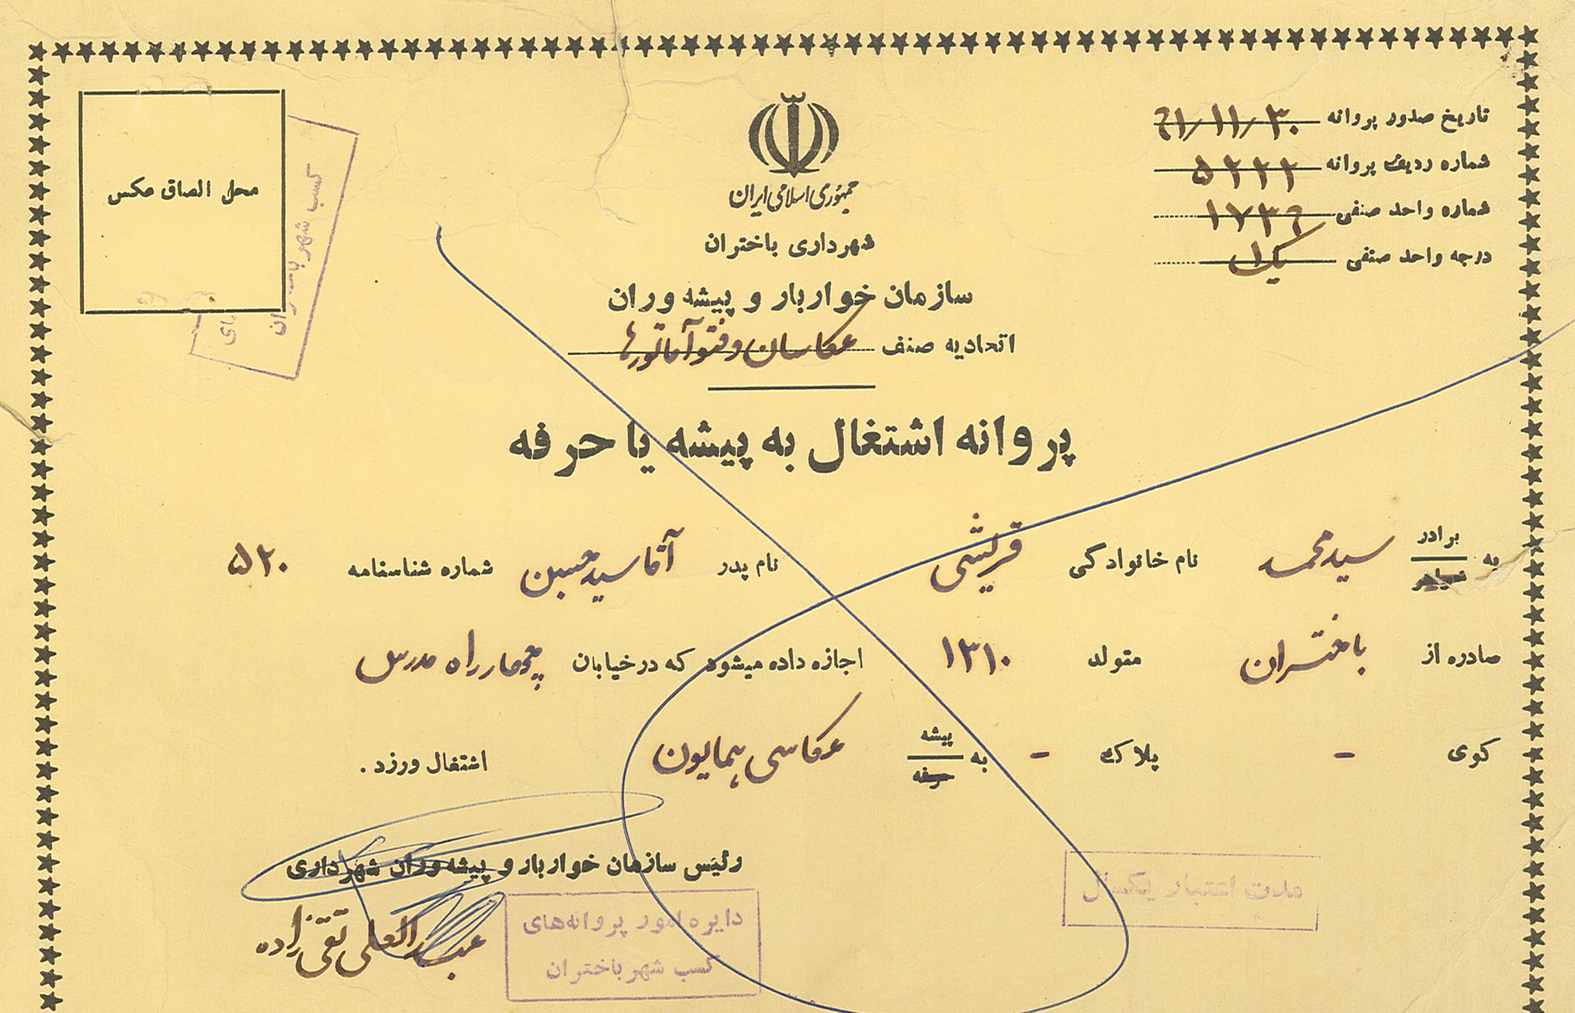 تاریخ صدور پروانه ۶۱/۱۱/۳۰
شماره ردیف پروانه ۵۲۲۲
شماره واحد صنفی ۱۷۳۶
درجه واحد صنفی یک
جمهوری اسلامی ایران
شهرداری باختران
سازمان خواربار و پیشه وران
اتحادیه صنف عکاسان و فتوآماتورها
محل الصاق عکس
کسب شهر باختران
پروانه اشتغال به پیشه یا حرفه
به برادر سید محمد نام خانوادگی قریشی نام پدر آقا سید حسین شماره شناسنامه ۵۲۰
صادره از باختران متولد ۱۳۱۰ اجازه داده میشود که در خیابان چهارراه مدرس
کوی - پلاک - به پیشه حرفه عکاسی همایون اشتغال ورزد .
رئیس سازمان خواربار و پیشه وران شهرداری
عبدالعلی تقی زاده
دایره امور پروانه‌های
کسب شهر باختران
مدت اعتبار یکسال